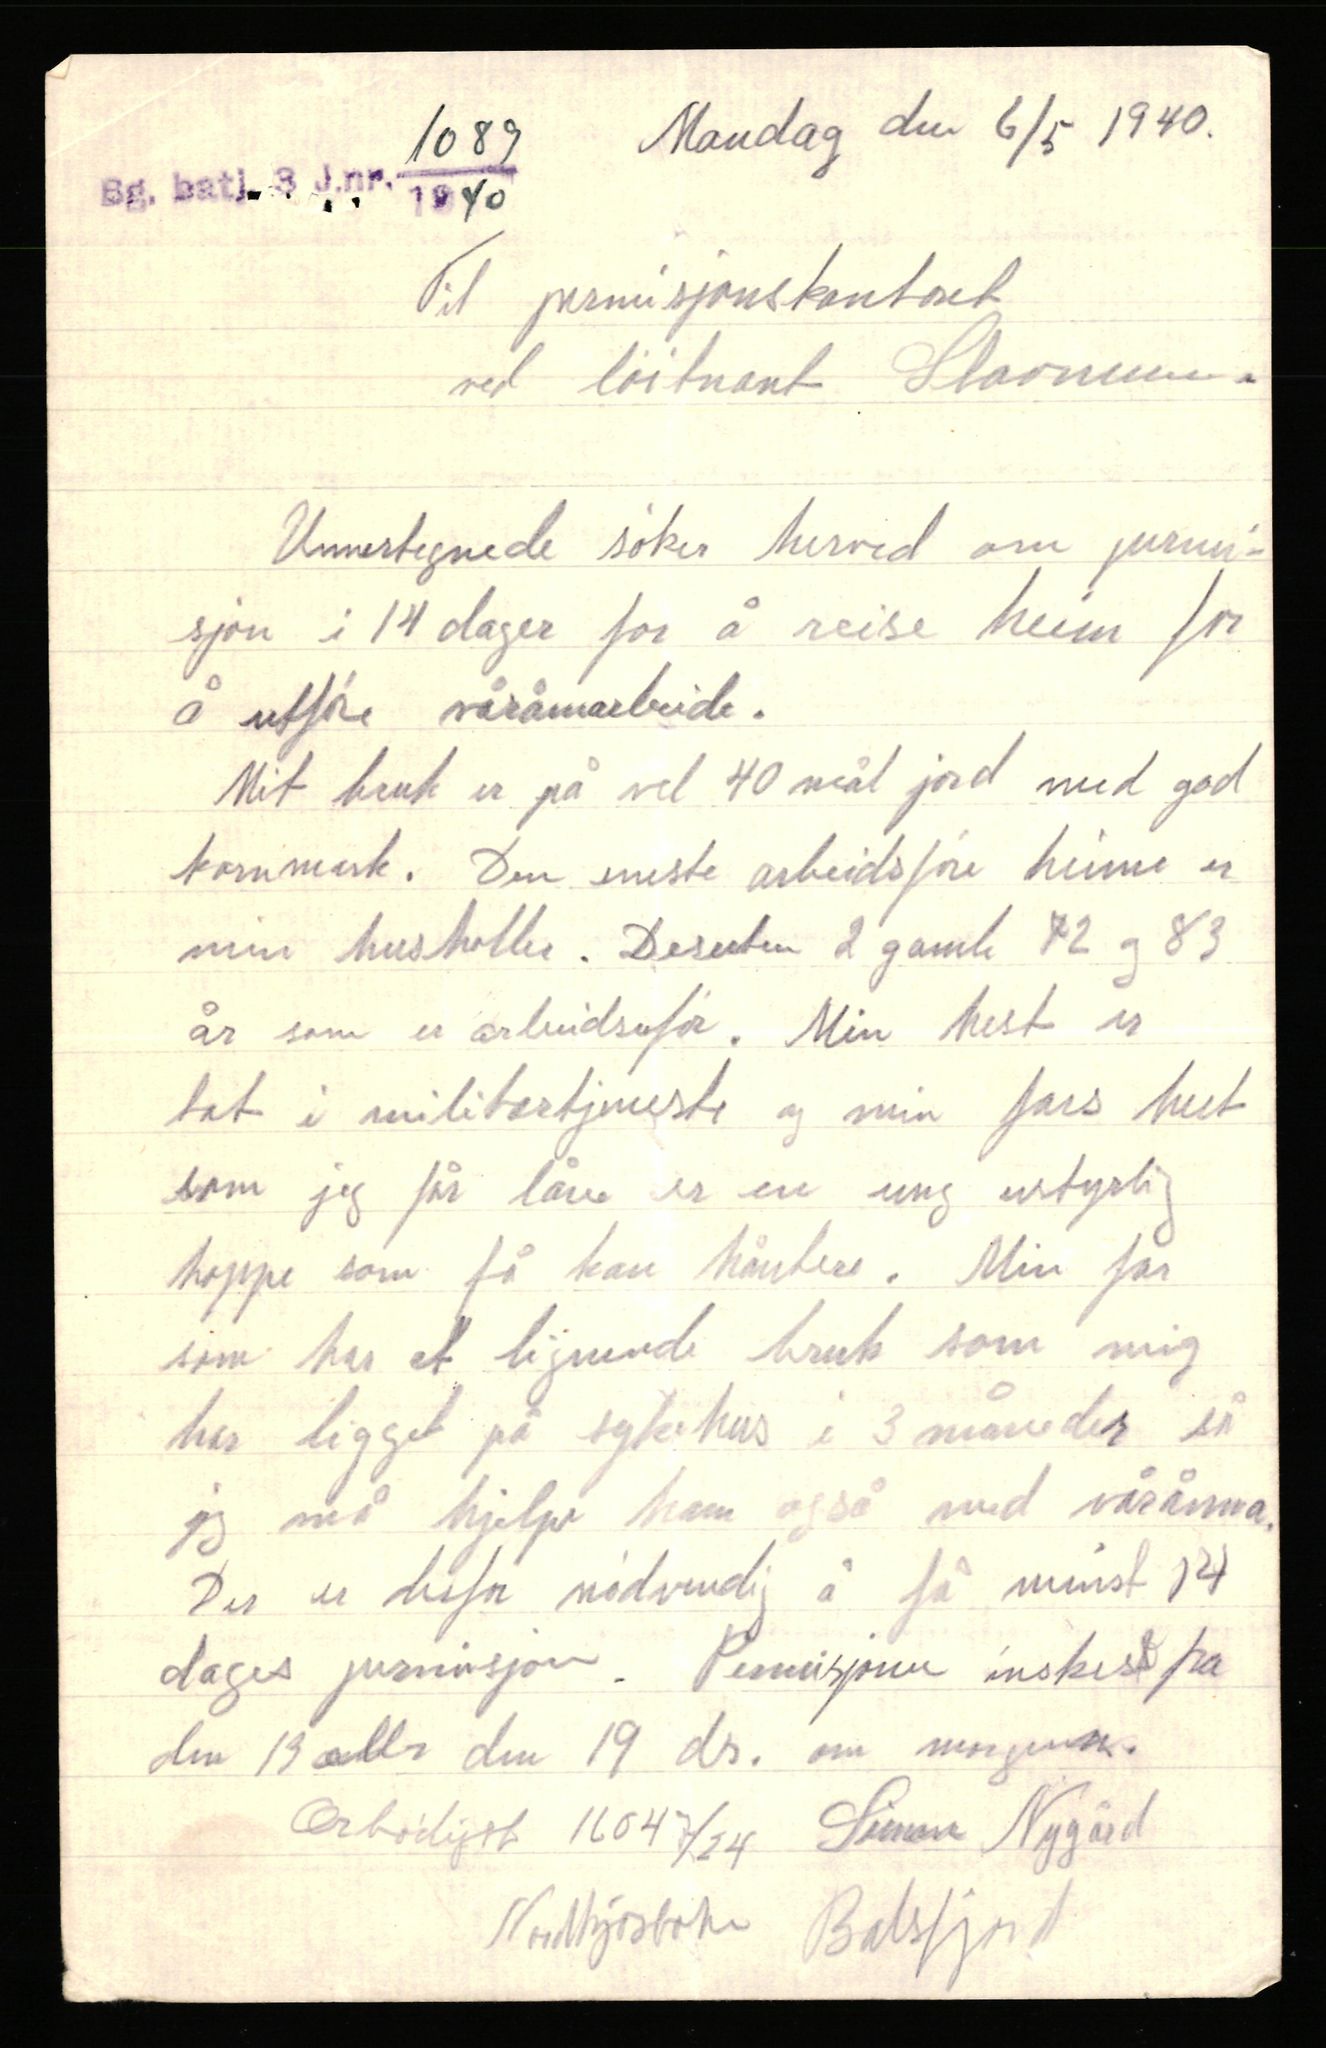 Mandag den 6/5 1940.
Bg. batj. 3 J.nr. 1089
1940
Til permisjonskontoret
ved löitnant
Unnertegnede söker herved om permi-
sjon i 14 dager for å reise heim for
å utföre våronnarbeide.
Mit bruk er på vel 40 mål jord med god
kornmark. Den eneste arbeidsföre heime er
min husholler. Desuten 2 gamle 72 og 83
år som er arbeidsuför. Min hest er
tat i militærtjeneste og min fars hest
som jeg får låne er en ung ustyrlig
hoppe som få kan håntere. Min far
som har et lignende bruk som mig
har ligget på sykehus i 3 måneder så
jeg må hjelpe ham også med våronna.
Der er derfor nödvendig å få minst 14
dages permisjon. Permisjonen önskes fra
den 13 eller den 19 ds. om morgenen.
Ærbödigst 16047/24 Simon Nygård
Balsfjord